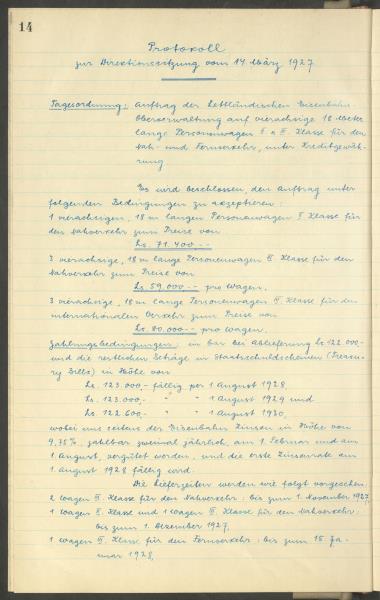 14
Protokoll
zur Direktionssitzung vom 14 März 1927
Tagesordnung: Auftrag der Lettländischen Eisenbahn-
Oberverwaltung auf vierachsige 18 Meter
lange Personenwagen II Klasse für den
Nah- und Fernverkehr, unter Kreditgewäh-
rung.
Es wird beschlossen, den Auftrag unter
folgenden Bedingungen zu akzeptieren:
1 vierachsigen, 18 m langen Personenwagen Klasse für
den Nahverkehr zum Preise von
Ls. 71.400.--
3 vierachsige, 18 m lange Personenwagen Klasse für den
Nahverkehr zum Preise von
Ls. 59.000.-- pro Wagen.
3 vierachsige, 18 m lange Personenwagen Klasse für den
internationalen Verkehr zum Preise von
Ls. 80.000.-- pro Wagen.
Zahlungsbedingungen: in bar bei Ablieferung Ls 122 000.-
und die restlichen Beträge in Staatsschuldscheinen (Treasu-
ry Bills) in Höhe von
Ls. 123.000.- fällig per 1 August 1928,
Ls. 123.000.- " " 1 August 1929 und
Ls. 122.600.- " " 1 August 1930,
wobei uns seitens der Eisenbahn Zinsen in Höhe von
9,35%, zahlbar zweimal jährlich, am 1. Februar und am
1 August, vergütet werden, und die erste Zinsenrate am
1 August 1928 fällig wird.
Die Lieferzeiten werden wie folgt vorgesehen:
2 Wagen Klasse für den Nahverkehr: bis zum 1. November 1927,
1 Wagen Klasse und 1 Wagen Klasse für den Nahverkehr:
bis zum 1. Dezember 1927,
1 Wagen Klasse für den Fernverkehr: bis zum 15. Ja-
nuar 1928,